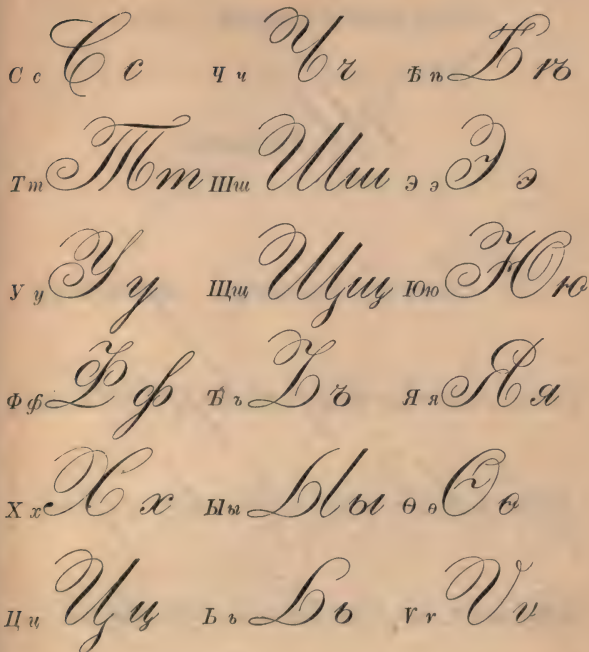 С с С с Ч ч Ч ч Ѣ ѣ Ѣ ѣ
Т т Т т Ш ш Ш ш Э э Э э
У у У у Щ щ Щ щ Ю ю Ю ю
Ф ф Ф ф Ъ ъ Ъ ъ Я я Я я
Х х Х х Ы ы Ы ы Ѳ ѳ Ѳ ѳ
Ц ц Ц ц Ь ь Ь ь Ѵ ѵ Ѵ ѵ